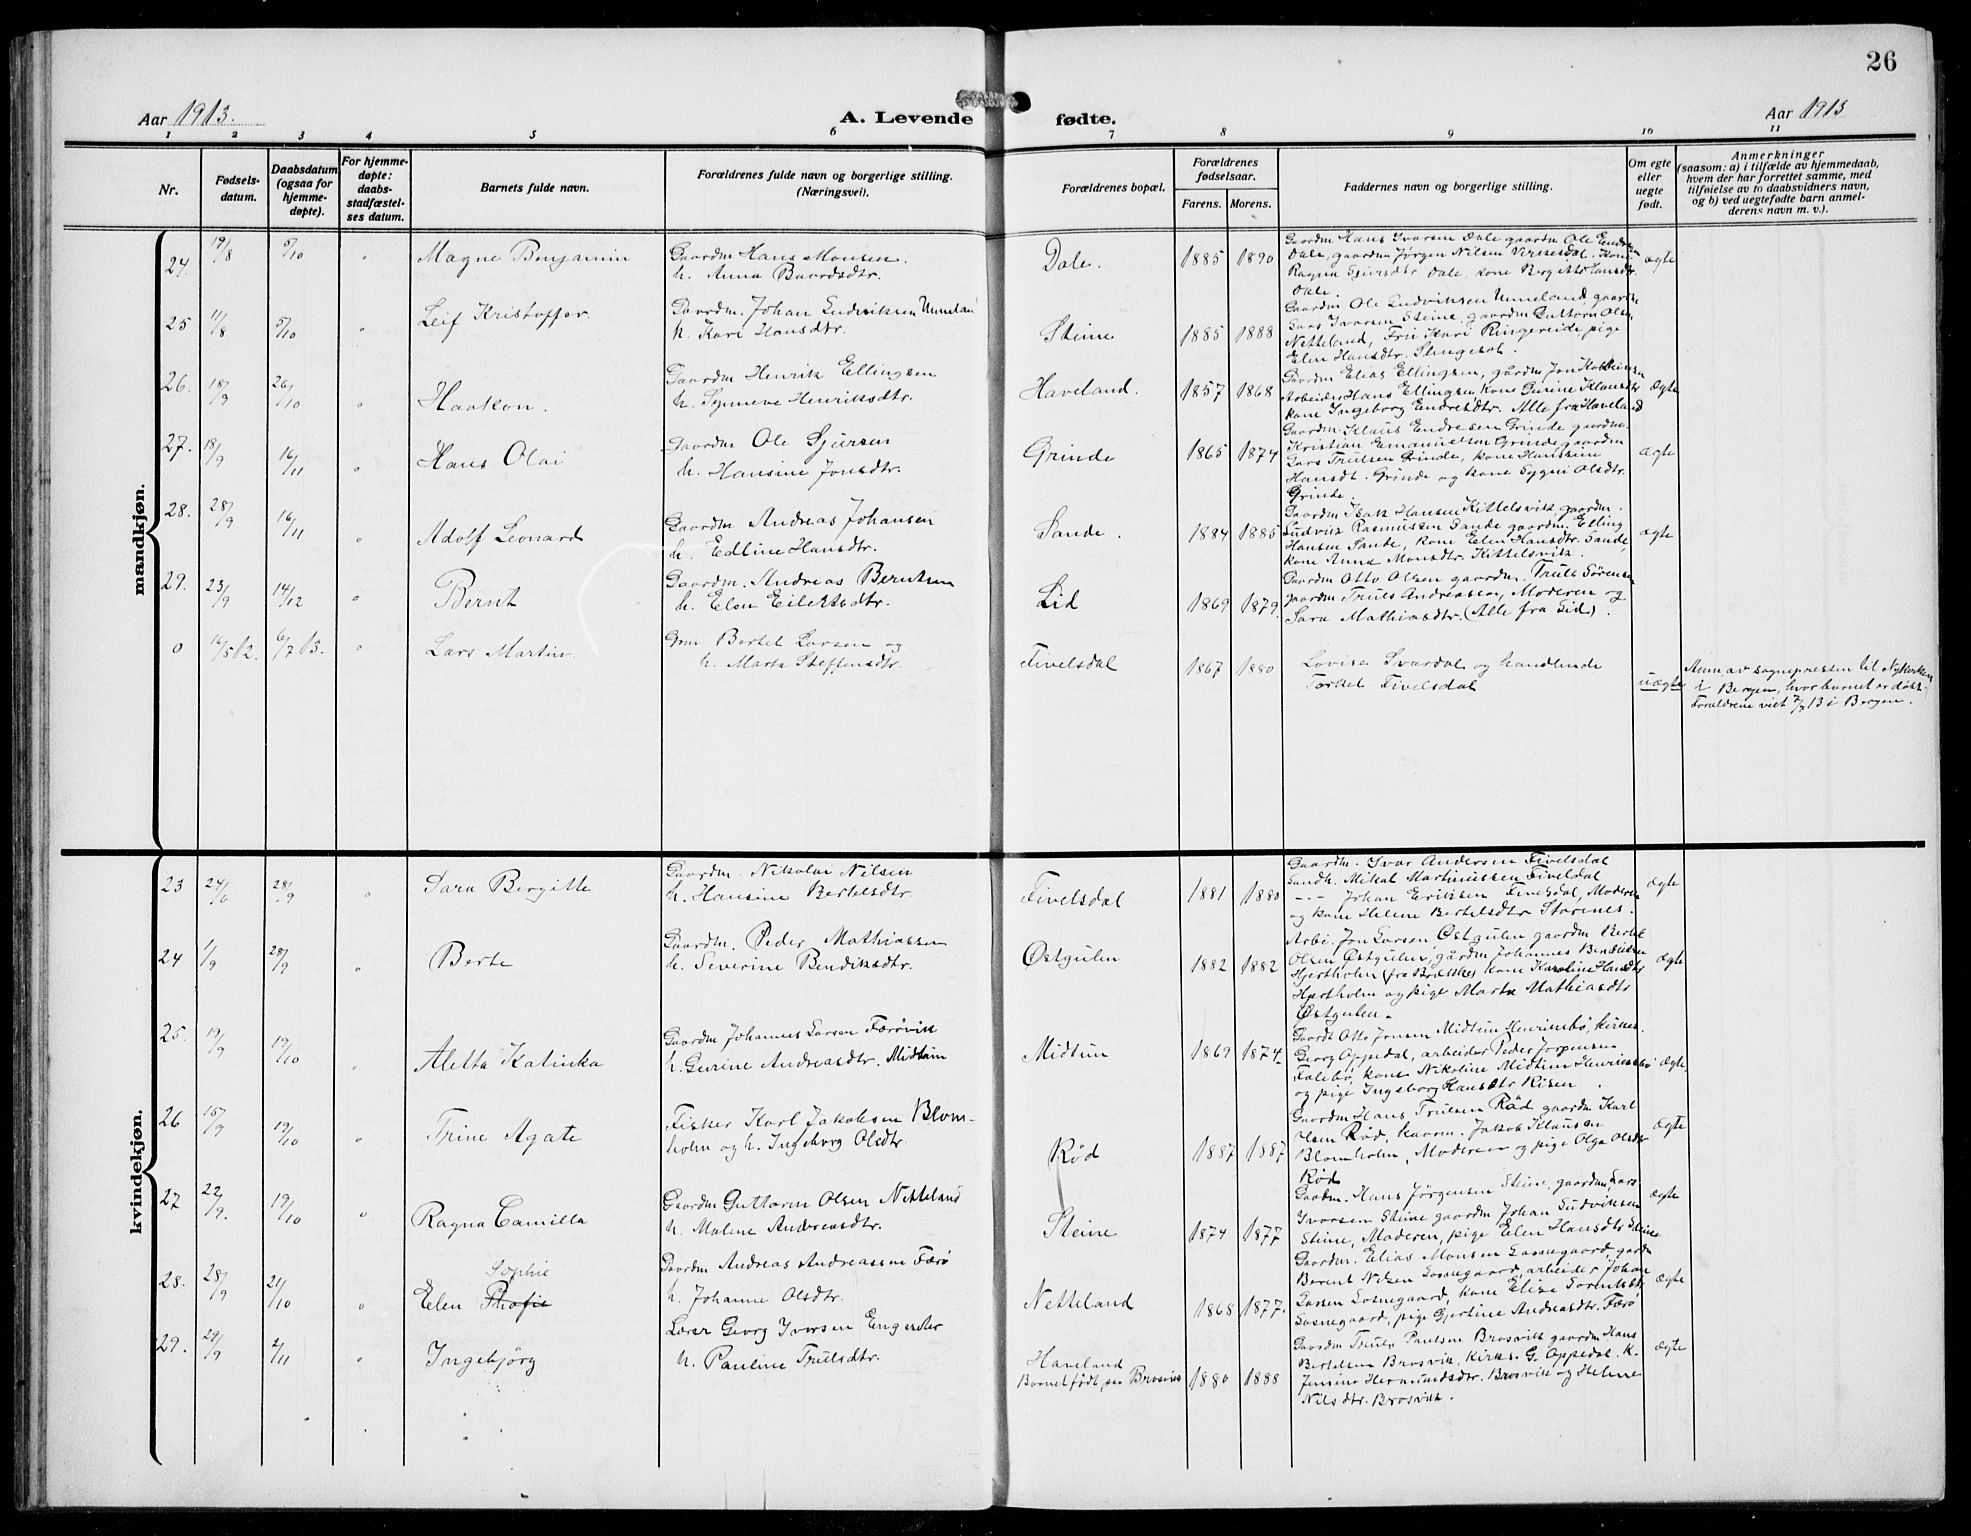 26
Aar 1913.
A. Levende fødte.
Aar 1913
1 2 3 4 5 6 7 8 9 10 11
Nr.
Fødsels-
datum.
Daabsdatum
(ogsaa for
hjemme-
døpte).
For hjemme-
døpte:
daabs-
stadfæstel-
ses datum.
Barnets fulde navn.
Forældrenes fulde navn og borgerlige stilling.
(Næringsvei).
Forældrenes bopæl.
Forældrenes
fødselsaar.
Farens. Morens.
Faddernes navn og borgerlige stilling.
Om egte
eller
uegte
født.
Anmerkninger
(saasom: a) i tilfælde av hjemmedaab,
hvem der har forrettet samme, med
tilføielse av to daabsvidners navn,
og b) ved uegtefødte barn anmel-
derens navn m. v.).
mandkjøn.
24. 19/8 5/10 " Magne Benjamin
Gaardm Hans Monsen
h. Anna Baardsdtr.
Dale. 1885 1890
Gaardm Hans Ivarsen Dale gaardm Ole Endresen
Dale, gaardm Jørgen Nilsen Virkesdal. Kone
Ragna Sjursdtr Dale, kone Berg Hansdtr
Dale
ægte
25 11/8 5/10 " Leif Kristoffer
Gaardm. Johan Ludviksen Unneland
h. Kari Hansdtr.
Steine 1885 1888
Gaardm Ole Ludviksen Unneland, gaardm
Lars Ivarsen Steine gaardm Guttorm Olsen
Netteland, Frü Kari Ringereide, pige
Elen Hansdtr.
26. 18/9 26/10 " Haakon.
Gaardm Henrik Ellingsen
h. Synneve Henriksdtr.
Haveland. 1857 1868
Gaardm Elias Ellingsen, gårdm Jon
Arbeider Hans Ellingsen kone Gurine Klausdtr
kone Ingeborg Endresdtr. Alle fra Haveland
ægte
27. 18/9 16/11 " Hans Olai
Gaardm Ole Sjursen
h. Hansine Jonsdtr.
Grinde 1865 1874
Gaardm. Klaus Endresen Grinde gaardm.
Kristian Emanuelsen Grinde gaardm
Lars Trulsen Grinde, kone Hansine
Hansdt. Grinde og kone Sygni Olsdtr.
Grinde.
ægte
28. 28/9 16/11 " Adolf Leonard
Gaardm Andreas Johansen
h. Edline Hansdtr.
Sande. 1884 1885
Gaardm Isak Hansen Kittelsvik, gaardm.
Ludvik Rasmussen Sande gaardm. Elling
Hansen Sande, kone Elen Hansdtr. Sande,
kone Anna Monsdtr. Kittelsvik.
ægte
29. 23/9 14/12 " Bernt
Gaardm. Andreas Berntsen
h. Elen Eilertsdtr.
Lid 1869 1879.
Gaardm Otto Olsen gaardm. Truls Sørensen
gaardm Truls Andreassen, Moderen og
Sara Mathiasdtr. (Alle fra Lid).
0 16/5 12. 6/7 13. " Lars Martin
Grm Bertel Larsen og
h. Marta Steffensdtr.
Fivelsdal 1867 1880
Lovise Svardal og handlende
Torkel Fivelsdal
uægte
Anm av sognepresten til Nykirken
i Bergen, hvor barnet er døbt.
Forældrene viet 7/7 13 i Bergen.
kvindekjøn.
23 24/6 28/9 " Sara Bergitte
Gaardm. Nikolai Nilsen
h. Hansine Bertelsdtr.
Fivelsdal 1881 1880
Gaardm. Ivar Andersen Fivelsdal
Landh. Mikal Martinussen Fiveldal
-"- Johan Eriksen Fivelsdal, Moderen
og kone Helene Bertelsdtr Storenes.
ægte
24 1/9 28/9 " Berte
Gaardm. Peder Mathiassen
h. Severine Bendiksdtr.
Østgulen 1882 1882
Arb. Jon Larsen Østgulen gaardm Bertel
Olsen Østgulen, gårdm Johannes Bendiksen
Hjertholm (fra Brekke) kone Karoline Hansdtr
Hjertholm og pige Marta Mathiasdtr
Østgulen.
ægte
25. 19/9 19/10 " Aletta Katinka
Gaardm Johannes Larsen Færøvik
h. Gurine Andreasdtr. Midtün
Midtün 1869 1874
Gaardb Otto Jonsen Midtün Henriksbø, kirkes.
Georg Oppedal, arbeider Peder Jørgensen
Falebø, kone Nikoline Midtün Henriksbø
og pige Ingeborg Hansdtr Risen.
ægte
26 15/9 19/10 " Trine Agate
Fisker Karl Jakobsen Blom-
holm og h. Ingeborg Olsdtr.
Rød 1887 1887
Gaardm Hans Trulsen Rød gaardm Karl
Olsen Rød, kaarm. Jakob Klausen
Blomholm, Moderen og pige Olga Olsdtr
Rød
ægte
27 22/9. 19/10 " Ragna Camilla
Gaardm Guttorm Olsen Netteland
h. Malene Andreasdtr.
Steine 1874 1877
Gaardm. Hans Jørgensen Steine, gaardm Lars
Ivarsen Steine gaardm Johan Ludviksen
Steine, Moderen, pige Elen Hansdtr Steine
ægte
28. 28/9 21/10 " Elen Sophie
Gaardm Andreas Andreassen Færø
h. Johanne Olsdtr.
Netteland 1868 1877.
Gaardm. Elias Monsen Losnegaard, gårdm
Berent Nilsen Losnegaard, arbeider Johan
Larsen Losnegaard, kone Elise
Losnegaard, pige Gjertine Andreasdtr. Færø
ægte
29. 29/9 2/11 " Ingebjørg
Lærer Georg Ivarsen Engesæter
h. Pauline Trulsdtr.
Haveland
Barnet født paa Brosvik
1880 1888
Gaardm Truls Paulsen Brosvik gaardm Hans
Bertelsen Brosvik, Kirkes. G. Oppedal. K.
Jensine Hermundsdtr. Brosvik og Helene
Nilsdtr. Brosvik.
ægte